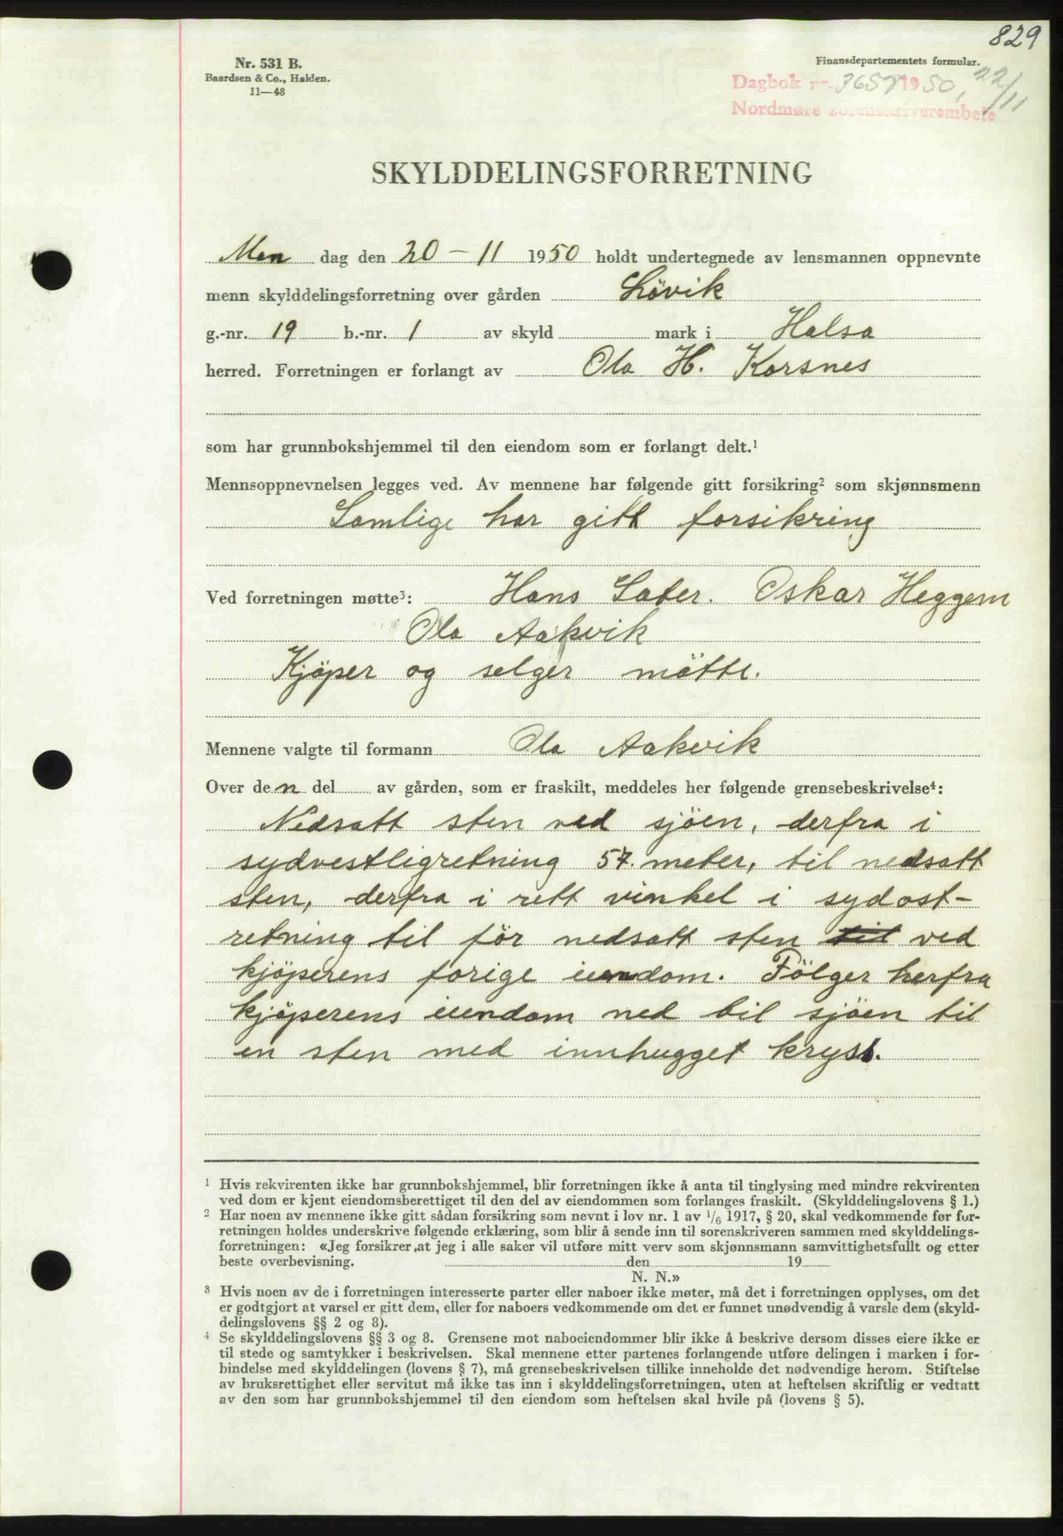 829
Nr. 531 B.
Baardsen & Co., Halden.
11—48
Finansdepartementets formular.
Dagbok nr. 3657 1950, 22/11
Nordmøre sorenskriverembete
SKYLDDELINGSFORRETNING
Man dag den 20 - 11 1950 holdt undertegnede av lensmannen oppnevnte
menn skylddelingsforretning over gården Lövik
g.-nr. 19 b.-nr. 1 av skyld mark i Halsa
herred. Forretningen er forlangt av Ola H. Korsnes
som har grunnbokshjemmel til den eiendom som er forlangt delt.¹
Mennsoppnevnelsen legges ved. Av mennene har følgende gitt forsikring² som skjønnsmenn
Samlige har gitt forsikring
Ved forretningen møtte³: Hans Sater. Oskar Heggem
Ola Aakvik
Kjöper og selger mötte.
Mennene valgte til formann Ola Aakvik
Over den del av gården, som er fraskilt, meddeles her følgende grensebeskrivelse⁴:
Nedsatt sten ved sjöen, derfra i
sydvestligretning 57. meter, til nedsatt
sten, derfra i rett vinkel i sydost-
retning til för nedsatt sten til ved
kjöperens forige eiendom. Fölger herfra
kjöperens eiendom ned til sjöen til
en sten med innhugget kryss.
¹ Hvis rekvirenten ikke har grunnbokshjemmel, blir forretningen ikke å anta til tinglysing med mindre rekvirenten
ved dom er kjent eiendomsberettiget til den del av eiendommen som forlanges fraskilt. (Skylddelingslovens § 1.)
² Har noen av mennene ikke gitt sådan forsikring som nevnt i lov nr. 1 av 1/6 1917, § 20, skal vedkommende før for-
retningen holdes underskrive følgende erklæring, som blir å sende inn til sorenskriveren sammen med skylddelings-
forretningen: «Jeg forsikrer at jeg i alle saker vil utføre mitt verv som skjønnsmann samvittighetsfullt og etter
beste overbevisning. den 19
N. N.»
³ Hvis noen av de i forretningen interesserte parter eller naboer ikke møter, må det i forretningen opplyses, om det
er godtgjort at varsel er gitt dem, eller for naboers vedkommende om det er funnet unødvendig å varsle dem (skyld-
delingslovens §§ 2 og 8).
⁴ Se skylddelingslovens §§ 3 og 8. Grensene mot naboeiendommer blir ikke å beskrive dersom disses eiere ikke er
til stede og samtykker i beskrivelsen. Skal mennene etter partenes forlangende utføre delingen i marken i for-
bindelse med skylddelingen (lovens § 7), må grensebeskrivelsen tillike inneholde det nødvendige herom. Stiftelse
av bruksrettighet eller servitut må ikke tas inn i skylddelingsforretningen, uten at heftelsen skriftlig er vedtatt
av den som har grunnbokshjemmel til den eiendom som heftelsen skal hvile på (lovens § 5).